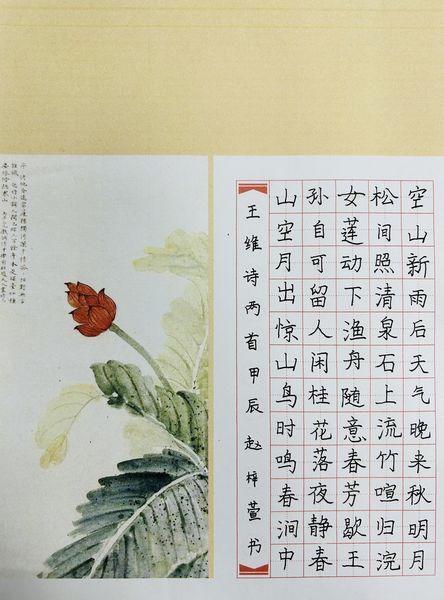 空山新雨后天气晚来秋明月
松间照清泉石上流竹喧归浣
女莲动下渔舟随意春芳歇王
孙自可留人闲桂花落夜静春
山空月出惊山鸟时鸣春涧中
王维诗两首甲辰赵梓萱书